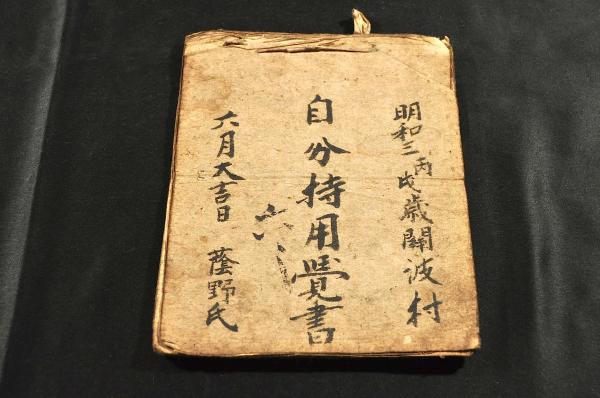 明和三丙戌歳關波村
自分持用覺書
六月大吉日 蔭野氏